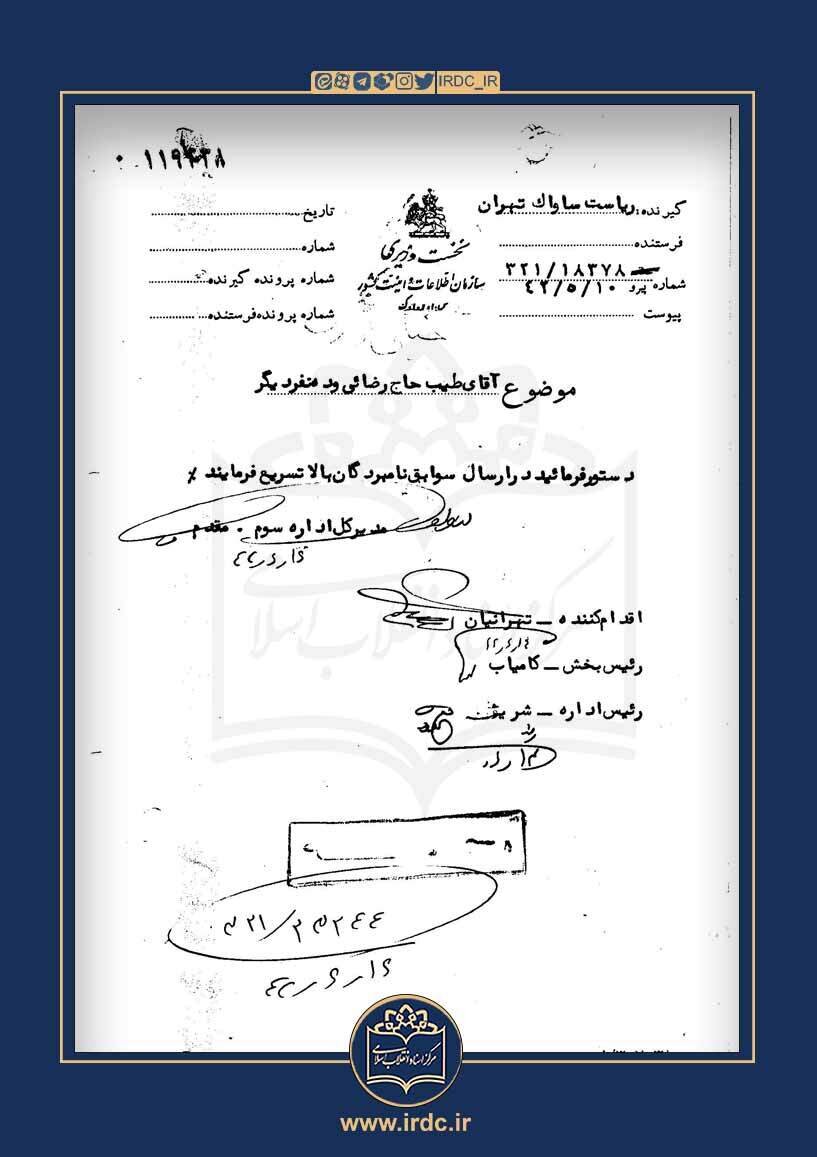 IRDC_IR
۰۱۱۹۴۳۸
گیرنده: ریاست ساواک تهران
فرستنده
شماره پیرو ۳۲۱/۱۸۳۷۸
۴۲/۵/۱۰
پیوست
نخست وزیری
سازمان اطلاعات و امنیت کشور
تاریخ
شماره
شماره پرونده گیرنده
شماره پرونده فرستنده
موضوع آقای طیب حاج رضائی و ده نفر دیگر
دستور فرمائید در ارسال سوابق نامبردگان بالا تسریع فرمایند
مدیر کل اداره سوم - مقدم
اقدام کننده - تهرانیان
رئیس بخش - کامیاب
رئیس اداره - شریفی
مرکز اسناد انقلاب اسلامی
www.irdc.ir